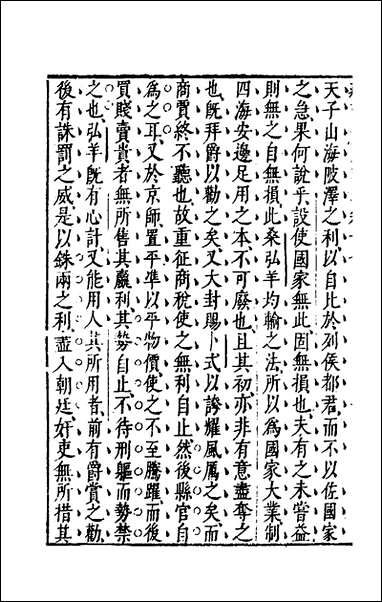 天子山海陂澤之利以自比於列侯都君而不以佐國家
之急果何說乎設使國家無此固無損也夫有之未甞益
則無之自無損此桑弘羊均輸之法所以為國家大業制
四海安邊足用之本不可廢也且其初亦非有意盡奪之
也旣拜爵以勸之矣又大封賜卜式以誇耀風厲之矣而
商賈終不聽也故重征商稅使之無利自止然後縣官自
為之耳又於京師置平準以平物價使之不至騰躍而後
買賤賣貴者無所售其贏利其勢自止不待刑驅而勢禁
之也弘羊旣有心計又能用人其所用者前有爵賞之勸
後有誅罰之威是以銖兩之利盡入朝廷奸吏無所措其